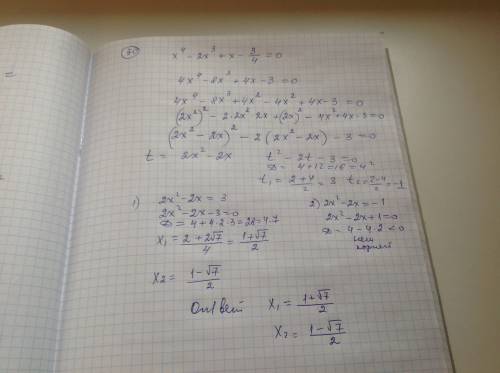 20
x⁴ - 2x³ + x - 3/4 = 0
4x⁴ - 8x³ + 4x - 3 = 0
4x⁴ - 8x³ + 4x² - 4x² + 4x - 3 = 0
(2x²)² - 2·2x²·2x + (2x)² - 4x² + 4x - 3 = 0
(2x² - 2x)² - 2(2x² - 2x) - 3 = 0
t = 2x² - 2x t² - 2t - 3 = 0
D = 4 + 12 = 16 = 4²
t₁ = (2+4)/2 = 3 t₂ = (2-4)/2 = -1
1) 2x² - 2x = 3
2x² - 2x - 3 = 0
D = 4 + 4·2·3 = 28 = 4·7
x₁ = (2+2√7)/4 = (1+√7)/2
x₂ = (1-√7)/2
2) 2x² - 2x = -1
2x² - 2x + 1 = 0
D = 4 - 4·2 < 0
нет
корней
Ответ x₁ = (1+√7)/2
x₂ = (1-√7)/2